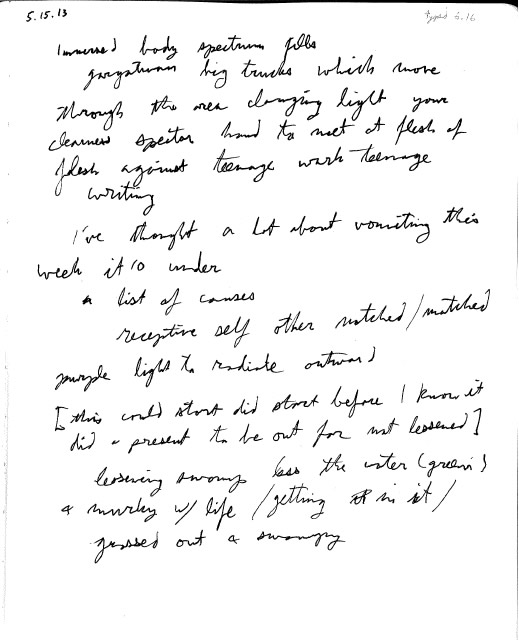 5.15.13
typed 5.16
Immersed body spectrum fills
big trucks which move
through the area changing light your
hand to meet at flesh of
flesh against teenage work teenage
writing
I've thought a lot about vomiting this
week it is under
a list of causes
receptive self other notched/matched
purple light to radiate outward
[this could start did start before I know it
did a present to be out for not lessened]
lessening swamp less the water (green)
& murky w/ life /getting in it/
grossed out a swampy